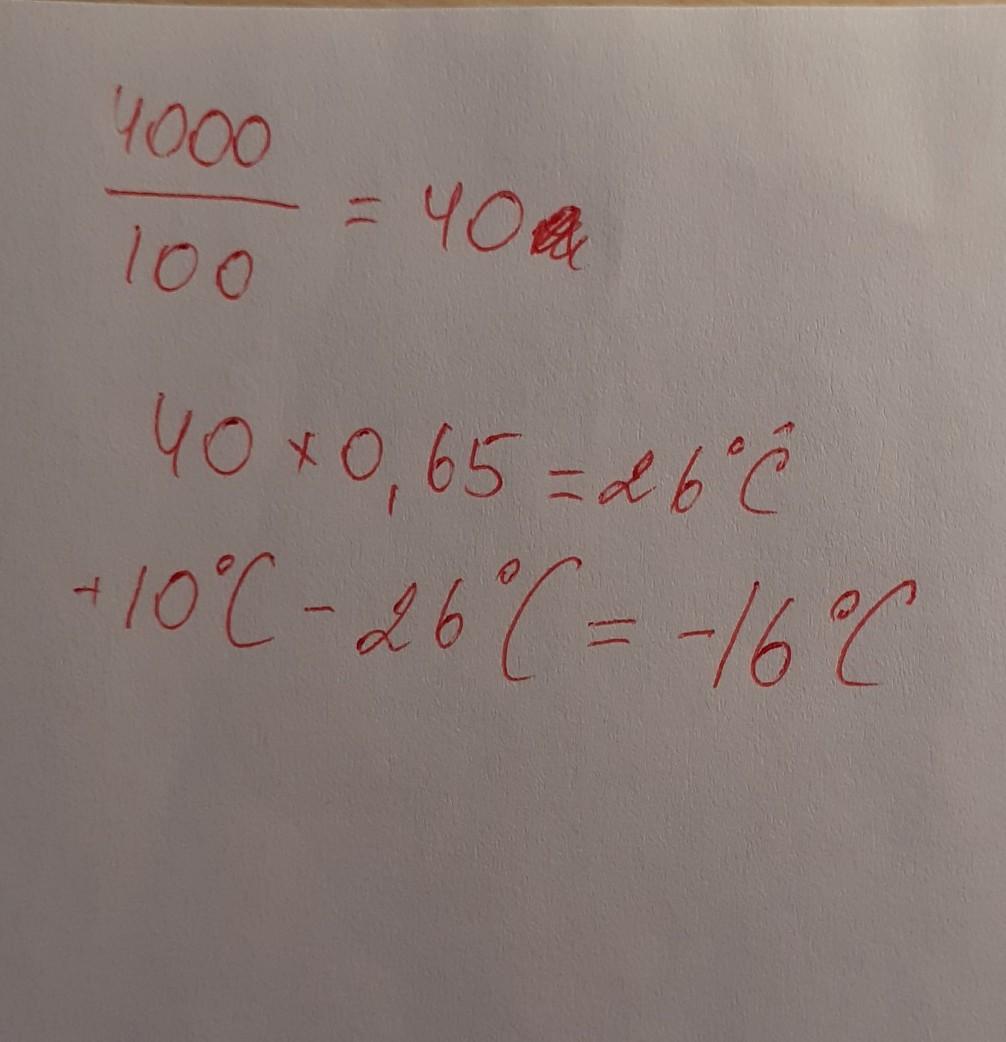 4000
100
= 40
40 × 0,65 = 26°C
+10°C - 26°C = -16°C